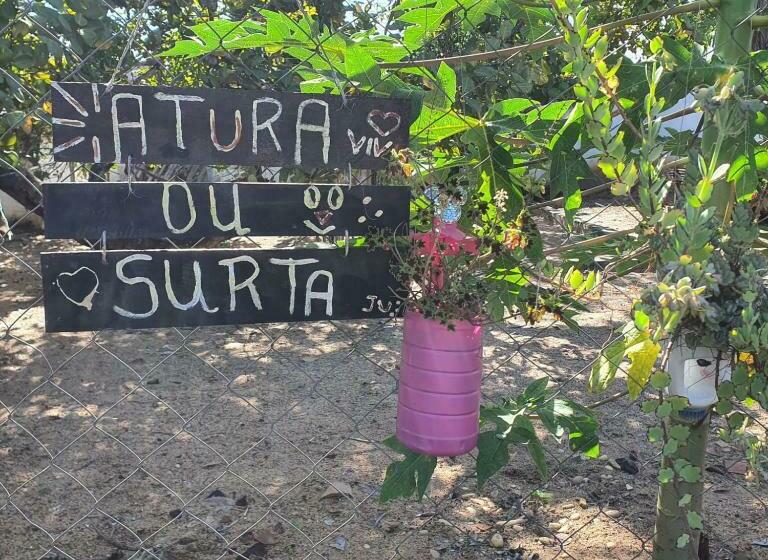 ATURA
OU
SURTA